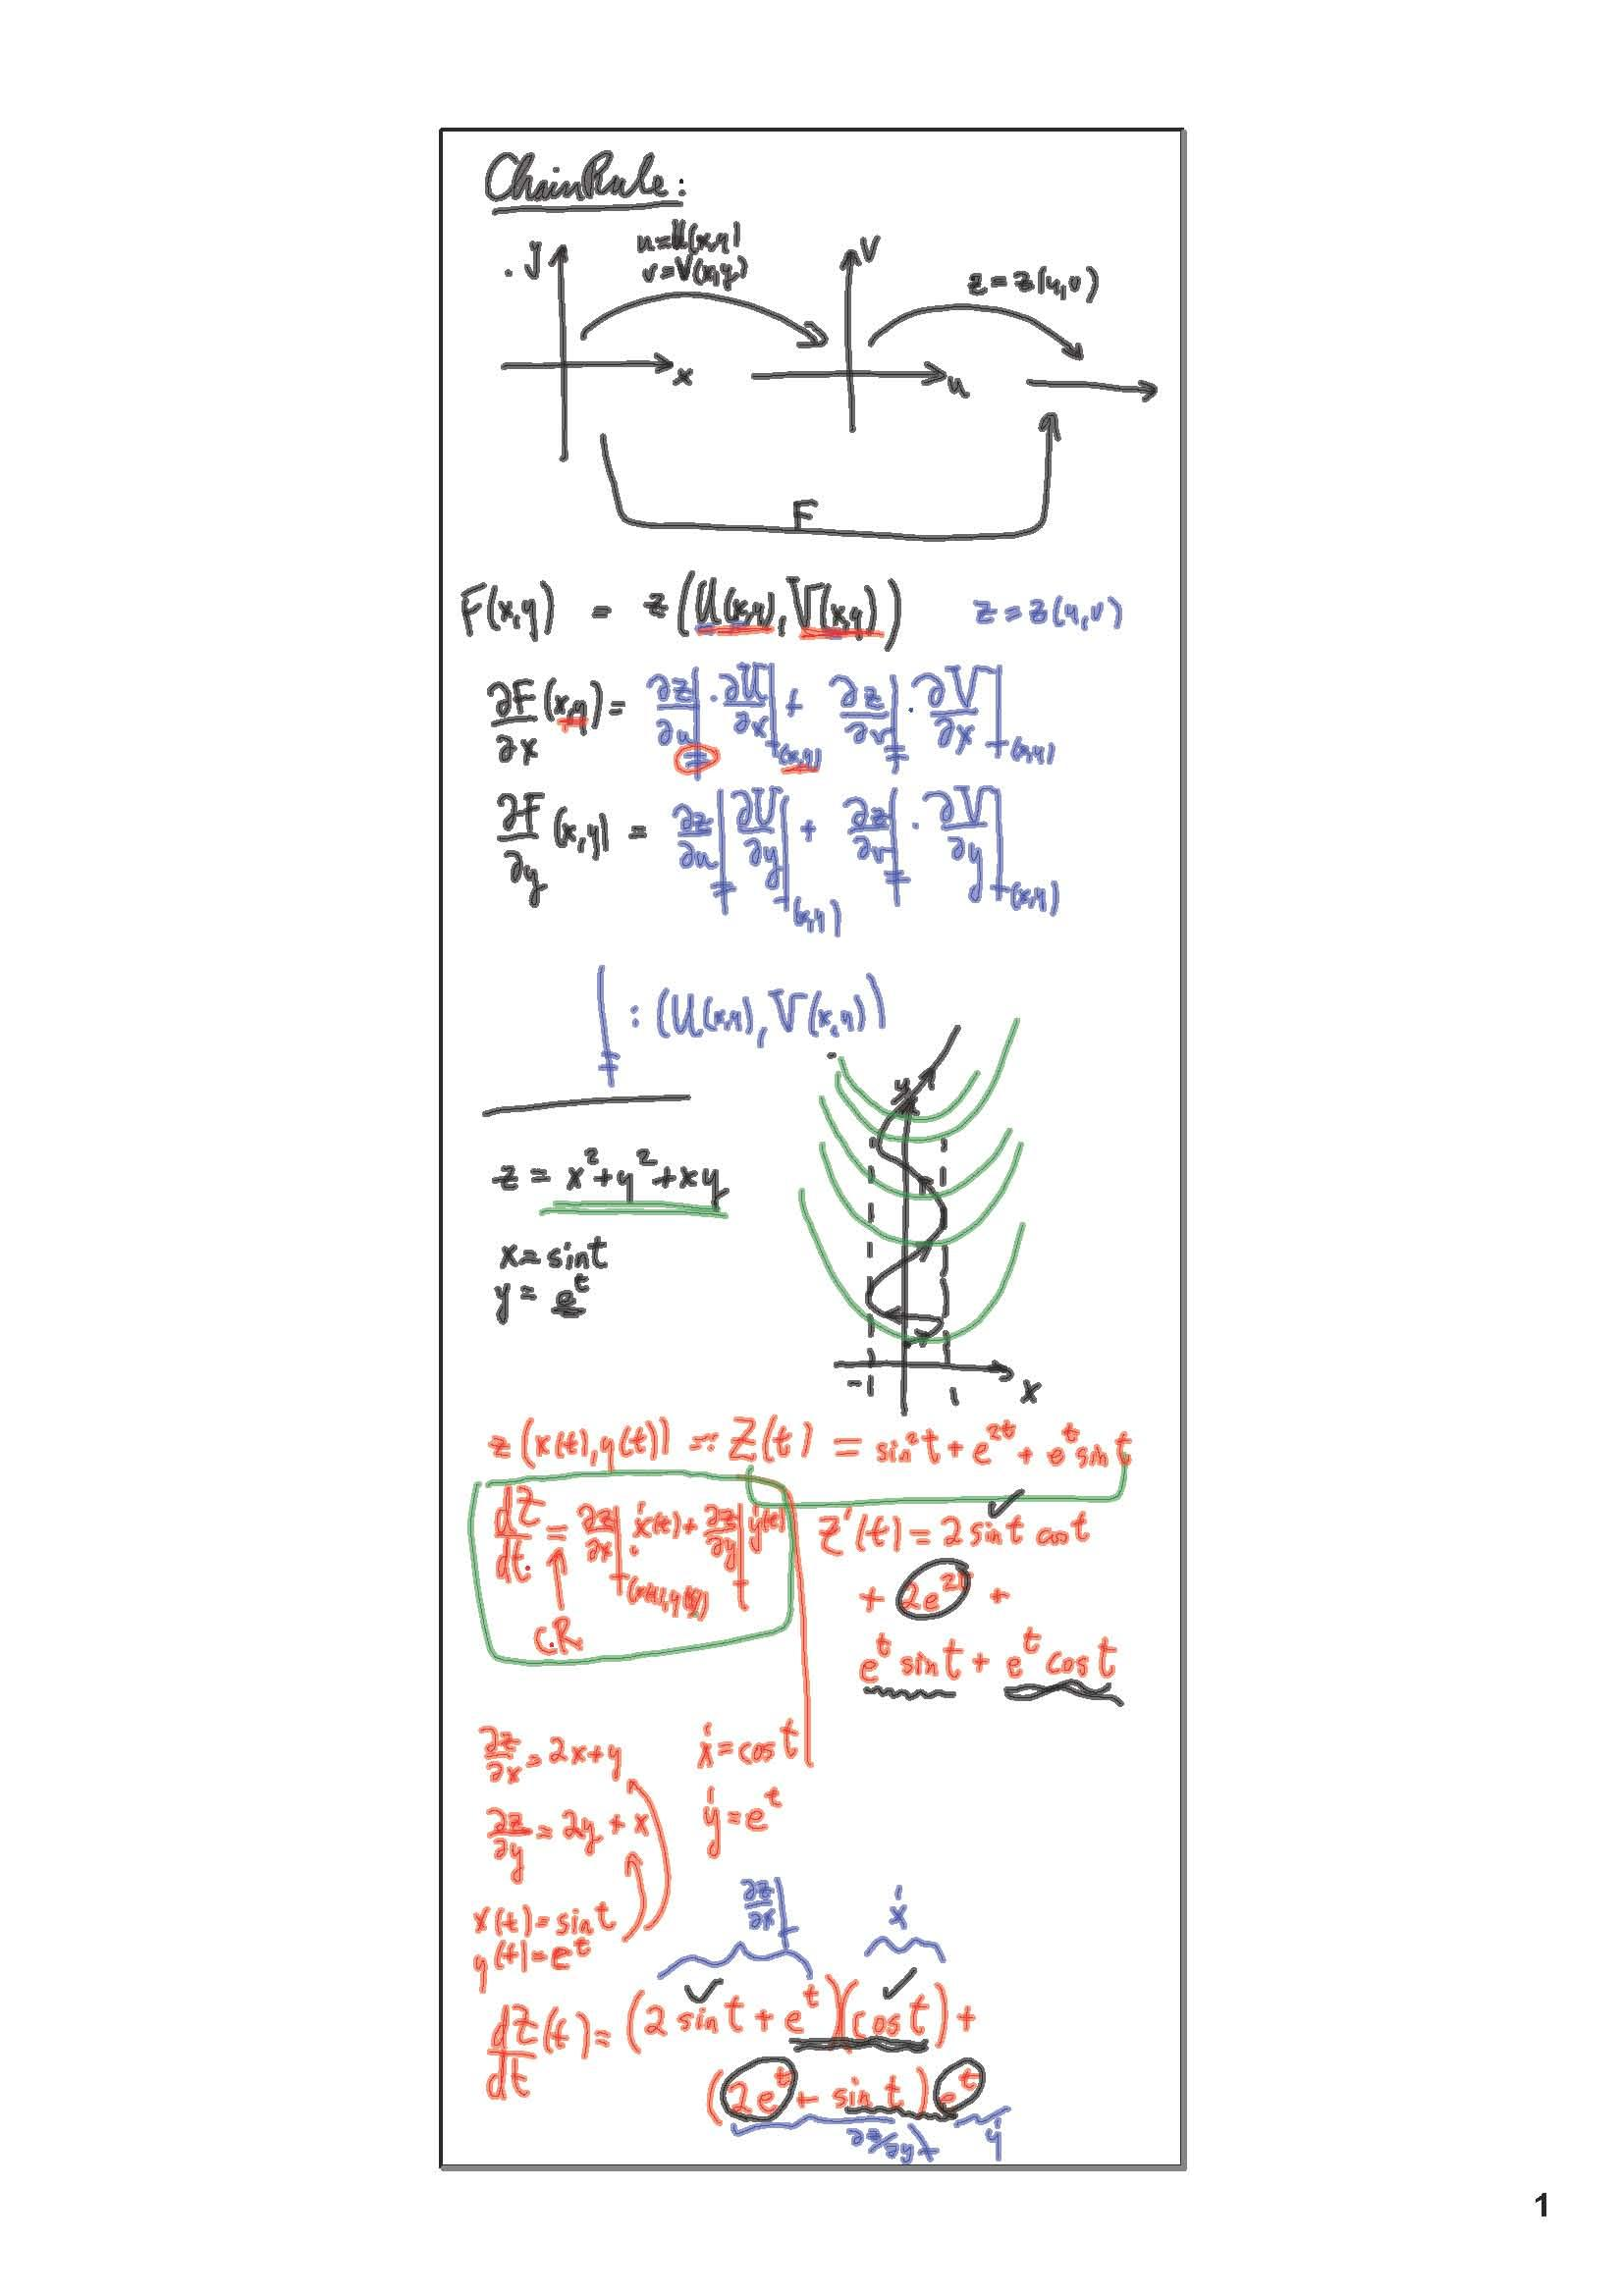 Chain Rule:
y
u=U(x,y)
v=V(x,y)
v
z=z(u,v)
x
u
F
F(x,y) = z(U(x,y), V(x,y)) z=z(u,v)
∂F/∂x (x,y) = ∂z/∂u|‡ · ∂U/∂x|(x,y) + ∂z/∂v|‡ · ∂V/∂x|(x,y)
∂F/∂y (x,y) = ∂z/∂u|‡ ∂U/∂y|(x,y) + ∂z/∂v|‡ · ∂V/∂y|(x,y)
|‡ : (U(x,y), V(x,y))
y
z = x²+y²+xy
x=sint
y= e^t
-1 1 x
z(x(t),y(t)) =: Z(t) = sin²t + e^2t + e^t sin t
dZ/dt = ∂z/∂x|(x(t),y(t)) ẋ(t) + ∂z/∂y| ẏ(t)
C.R
Z'(t) = 2 sint cost
+ 2e^2t +
e^t sint + e^t cost
∂z/∂x = 2x+y ẋ=cost
∂z/∂y = 2y+x ẏ=e^t
x(t)=sint
y(t)=e^t
∂z/∂x| ẋ
dZ/dt (t) = (2 sint + e^t)(cost) +
(2e^t + sint) e^t
∂z/∂y| ẏ
1